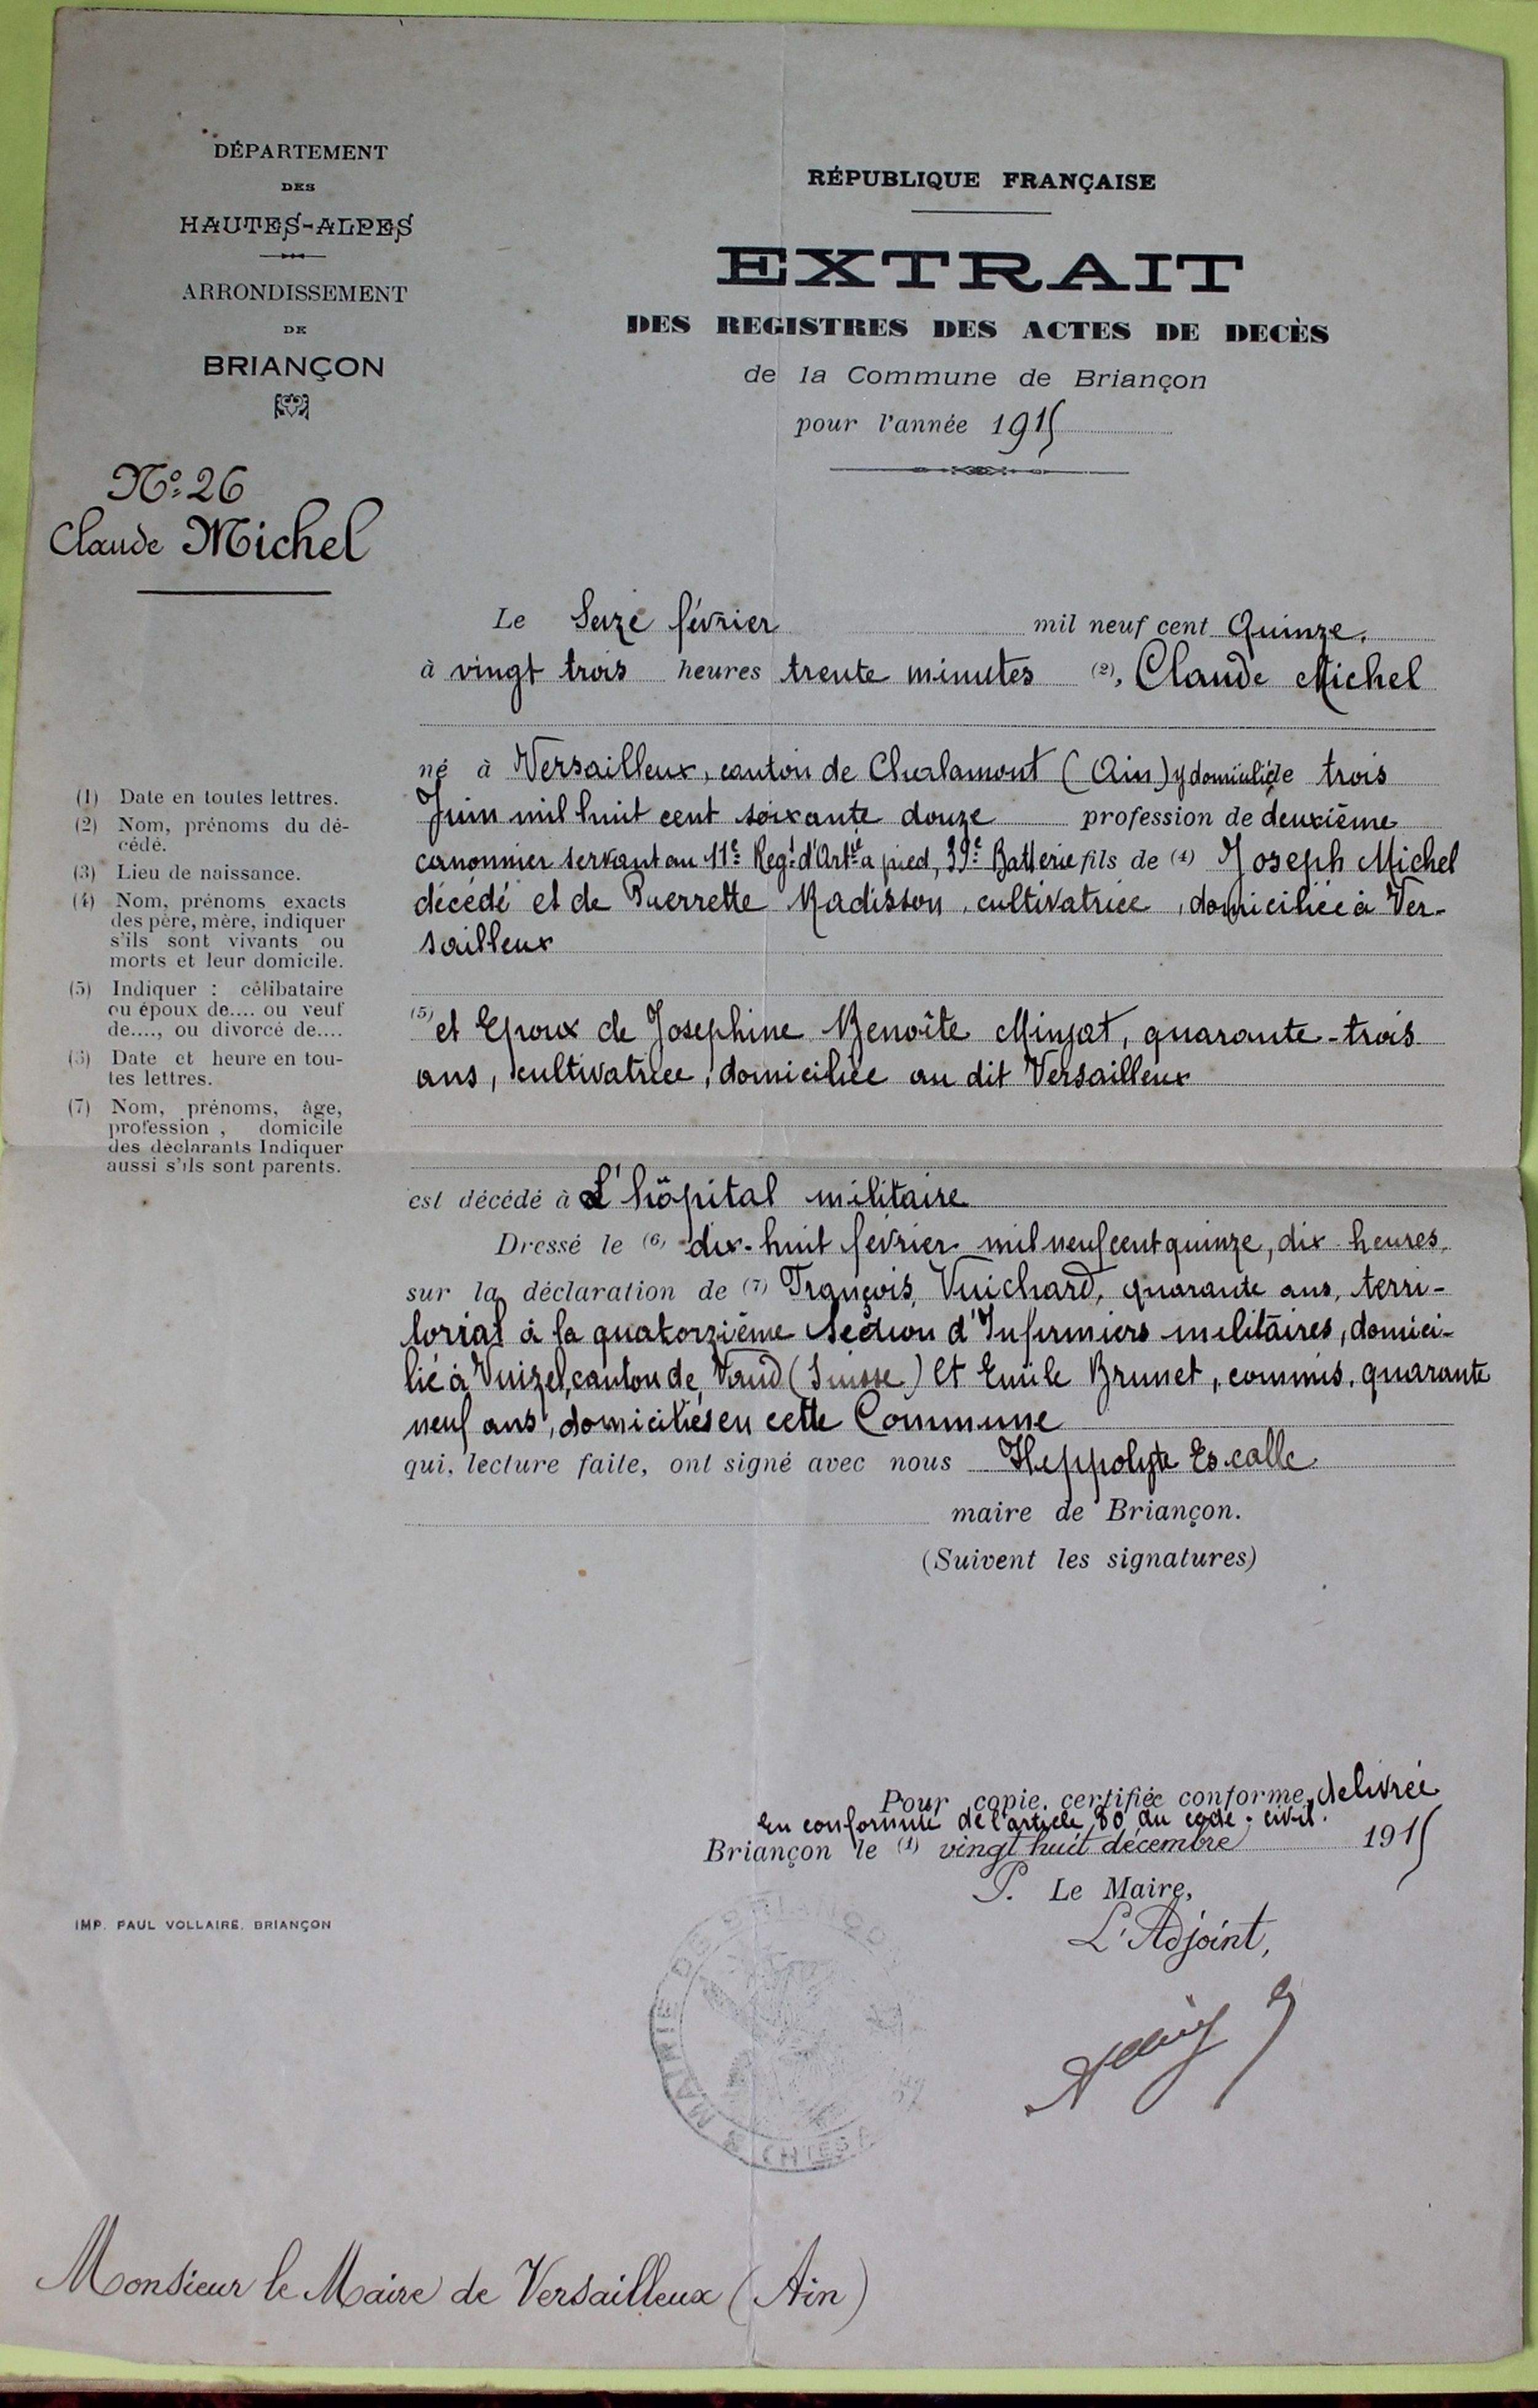 DÉPARTEMENT
DES
HAUTES-ALPES
ARRONDISSEMENT
DE
BRIANÇON
N° 26
Claude Michel
RÉPUBLIQUE FRANÇAISE
EXTRAIT
DES REGISTRES DES ACTES DE DECÈS
de la Commune de Briançon
pour l'année 1915
Le Seize février mil neuf cent Quinze,
à vingt trois heures trente minutes (2), Claude Michel
né à Versailleux, canton de Chalamont (Ain) y domicilié le trois
Juin mil huit cent soixante douze profession de deuxième
canonnier servant au 11e Regt d'Artie à pied, 39e Batterie fils de (4) Joseph Michel
décédé et de Pierrette Radisson, cultivatrice, domiciliée à Ver-
sailleux
(5) et Epoux de Josephine Benoîte Minjat, quarante-trois
ans, cultivatrice, domiciliée au dit Versailleux
est décédé à L'hôpital militaire
Dressé le (6) dix-huit février mil neuf cent quinze, dix heures,
sur la déclaration de (7) François Vuichard, quarante ans, terri-
torial à la quatorzième Section d'Infirmiers militaires, domici-
lié à canton de Vaud (Suisse) Et Emile Brunet, commis, quarante
neuf ans, domiciliés en cette Commune
qui, lecture faite, ont signé avec nous Heppolyte Escalle
maire de Briançon.
(Suivent les signatures)
(1) Date en toutes lettres.
(2) Nom, prénoms du dé-
cédé.
(3) Lieu de naissance.
(4) Nom, prénoms exacts
des père, mère, indiquer
s'ils sont vivants ou
morts et leur domicile.
(5) Indiquer : célibataire
ou époux de.... ou veuf
de...., ou divorcé de....
(6) Date et heure en tou-
tes lettres.
(7) Nom, prénoms, âge,
profession, domicile
des déclarants Indiquer
aussi s'ils sont parents.
Pour copie certifiée conforme, delivrée
En conformité de l'article 80 du code civil.
Briançon le (1) vingt huit décembre 1915
P. Le Maire,
L'Adjoint,
IMP. PAUL VOLLAIRE. BRIANÇON
MAIRIE DE BRIANÇON
Monsieur le Maire de Versailleux (Ain)